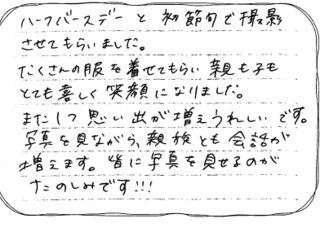 ハーフバースデーと初節句で撮影
させてもらいました。
たくさんの服を着せてもらい親も子も
とても喜しく笑顔になりました。
また1つ思い出が増えうれしいです。
写真を見ながら、親族とも会話が
増えます。皆に写真を見せるのが
たのしみです!!!